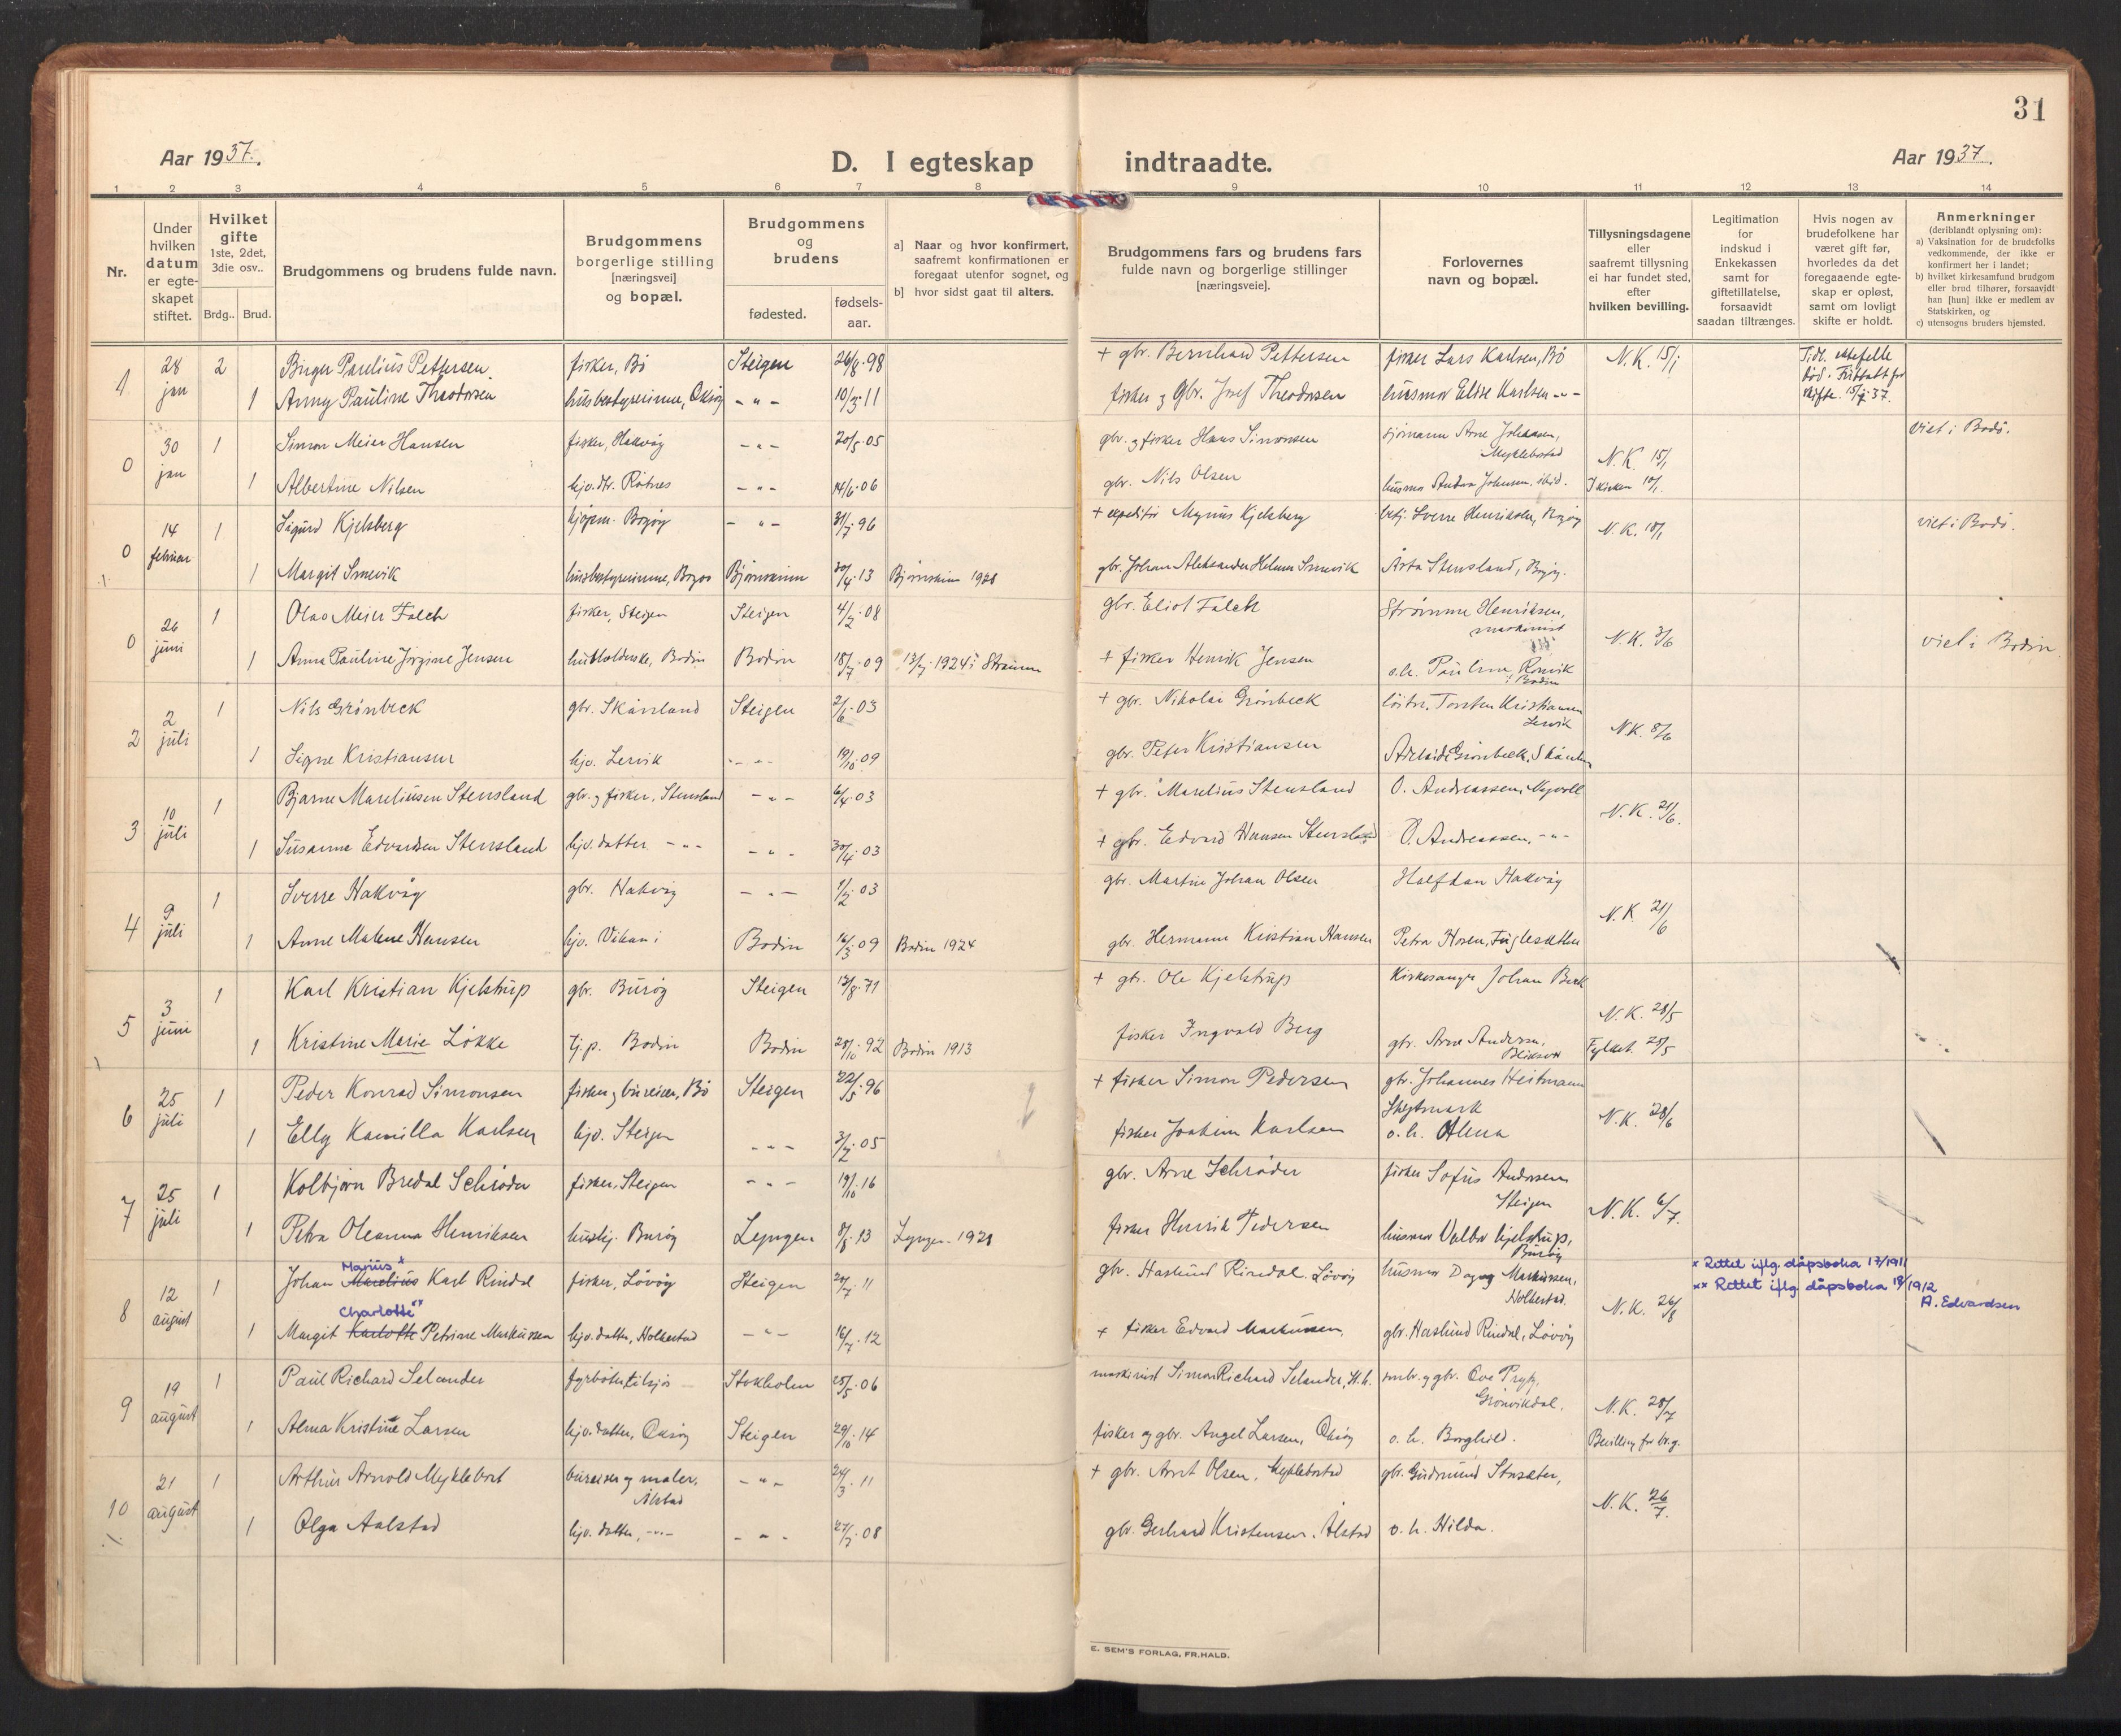 31
Aar 1937.
D. I egteskap indtraadte.
Aar 1937.
1 2 3 4 5 6 7 8 9 10 11 12 13 14
Nr.
Under hvilken datum er egte-skapet stiftet.
Hvilket gifte 1ste, 2det, 3die osv..
Brdg.. Brud.
Brudgommens og brudens fulde navn.
Brudgommens borgerlige stilling [næringsvei] og bopæl.
Brudgommens og brudens
fødested.
fødsels-aar.
a] Naar og hvor konfirmert, saafremt konfirmationen er foregaat utenfor sognet, og
b] hvor sidst gaat til alters.
Brudgommens fars og brudens fars fulde navn og borgerlige stillinger [næringsveie].
Forlovernes navn og bopæl.
Tillysningsdagene eller saafremt tillysning ei har fundet sted, efter hvilken bevilling.
Legitimation for indskud i Enkekassen samt for giftetillatelse, forsaavidt saadan tiltrænges.
Hvis nogen av brudefolkene har været gift før, hvorledes da det foregaaende egte-skap er opløst, samt om lovligt skifte er holdt.
Anmerkninger (deriblandt oplysning om):
a) Vaksination for de brudefolks vedkommende, der ikke er konfirmert her i landet;
b) hvilket kirkesamfund brudgom eller brud tilhører, forsaavidt han [hun] ikke er medlem av Statskirken, og
c) utensogns bruders hjemsted.
1 28 jan 2 Birger Parelius Pettersen fisker, Bø Steigen 26/8.98 + gbr. Bernhard Pettersen fisker Lars Karlsen, Bø N.K. 15/1
1 Anny Pauline Theodorsen husbestyrerinne, -"- 10/3.11 fisker og gbr. Josef Theodorsen husmor Elise Karlsen -"-
0 30 jan 1 Simon Meier Hansen fisker, Hakvåg -"- 20/5.05 gbr. og fisker Hans Simonsen sjømann Arne Johansen, Myklebostad N.K. 15/1 viet i Bodø.
1 Albertine Nilsen hjv. dtr. -"- 14/6.06 gbr. Nils Olsen
0 14 februar 1 Sigurd Kjelsberg kjøpm. Bogøy -"- 31/7.96 + expeditør Kjelsberg Sverre Henriksen, Bogøy N.K. 18/1 viet i Bodø.
1 Margit husbestyrerinne, Bogøy Bjørnskinn 30/4.13 Bjørnskinn 1928 gbr. Johan Aleksander Stensland, Bogøy.
0 26 juni 1 Olav Meier Falch fisker, Steigen Steigen 4/2.08 gbr. Eliot Falch Strømme Henriksen, maskinist N.K. 3/6 viet i Bodin.
1 Anna Pauline Jørgine Jensen husholderske, Bodin Bodin 18/7.09 1924 i + fisker Henrik Jensen o.h. Pauline, i Bodin
2 2 juli 1 Nils Grønbeck gbr. Skånland Steigen 2/6.03 + gbr. Nikolai Grønbeck Torsten Kristiansen Lervik N.K. 8/6
1 Signe Kristiansen hjv. Lervik -"- 19/10.09 gbr. Peter Kristiansen Adelaide Grønbeck,
3 10 juli 1 Bjarne Mareliusen Stensland gbr. og fisker, Stensland -"- 6/4.03 + gbr. Marelius Stensland O. Andreassen, N.K. 21/6.
1 Susanna Edvardsen Stensland hjv. datter -"- -"- 30/4.03 + gbr. Edvard Hansen Stensland O. Andreassen, -"-
4 9 juli 1 Sverre Hakvåg gbr. Hakvåg -"- 1/2.03 gbr. Martin Johan Olsen Halfdan Hakvåg N.K. 21/6
1 Anne Malene Hansen hjv. Vikan i Bodin 16/3.09 Bodin 1924 gbr. Hermann Kristian Hansen Petra Hosen,
5 3 juni 1 Karl Kristian Kjelstrup gbr. Burøy Steigen 13/8.71 + gbr. Ole Kjelstrup Kirkesanger Johan Berk N.K. 28/5
1 Kristine Marie Løkke tj.p. Bodin Bodin 28/10.92 Bodin 1913 fisker Ingvald Berg gbr. Arne Andersen, Fylket. 28/5
6 25 juli 1 Peder Konrad Simonsen fisker og bureiser, Bø Steigen 22/5.96 + fisker Simon Pedersen gbr. Johannes Heitmann N.K. 28/6
1 Elly Kamilla Karlsen hjv. Steigen -"- 3/2.05 fisker Joakim Karlsen o.h. Alma
7 25 juli 1 Kolbjørn Bredal Schrøder fisker, Steigen -"- 19/10.16 gbr. Arne Schrøder fisker Sofus Andersen Steigen N.K. 6/7.
1 Petra Oleanna Henriksen hushj. Burøy Lyngen 8/8.13 Lyngen 1928 fisker Henrik Pedersen husmor Valbor Kjelstrup, Burøy
8 12 august 1 Johan Marelius Marius* Karl Rindal fisker, Løvøy Steigen 20/7.11 gbr. Haslund Rindal, Løvøy husmor Dagny Markussen, Holkestad. N.K. 26/8
* Rettet iflg. dåpsboka 17/1911
** Rettet iflg. dåpsboka 18/1912
A. Edvardsen
1 Margit Karlotte Charlotte** Petrine Markussen hjv. datter, Holkestad -"- 16/7.12 + fisker Edvard Markussen, gbr. Haslund Rindal, Løvøy
9 19 august 1 Paul Richard Selander fyrbøter tilsjøs Stokholm 25/5.06 maskinist Simon Richard Selander, St.h. smbr. og gbr. Ove Pryp, Grønvikdal. N.K. 28/7
1 Alma Kristine Larsen hjv. datter, Steigen 29/10.14 fisker og gbr. Angel Larsen, o.h. Borghild. Bevilling for br.g.
10 21 august 1 Arthur Arnold Myklebost bureiser og maler, Ålstad -"- 24/3.11 + gbr. Arnt Olsen, Myklebostad gbr. Gudmund N.K. 26/7.
1 Olga Aalstad hjv. datter, -"- -"- 27/7.08 gbr. Gerhard Kristensen, Ålstad o.h. Hilda.
E. SEM'S FORLAG, FR.HALD.